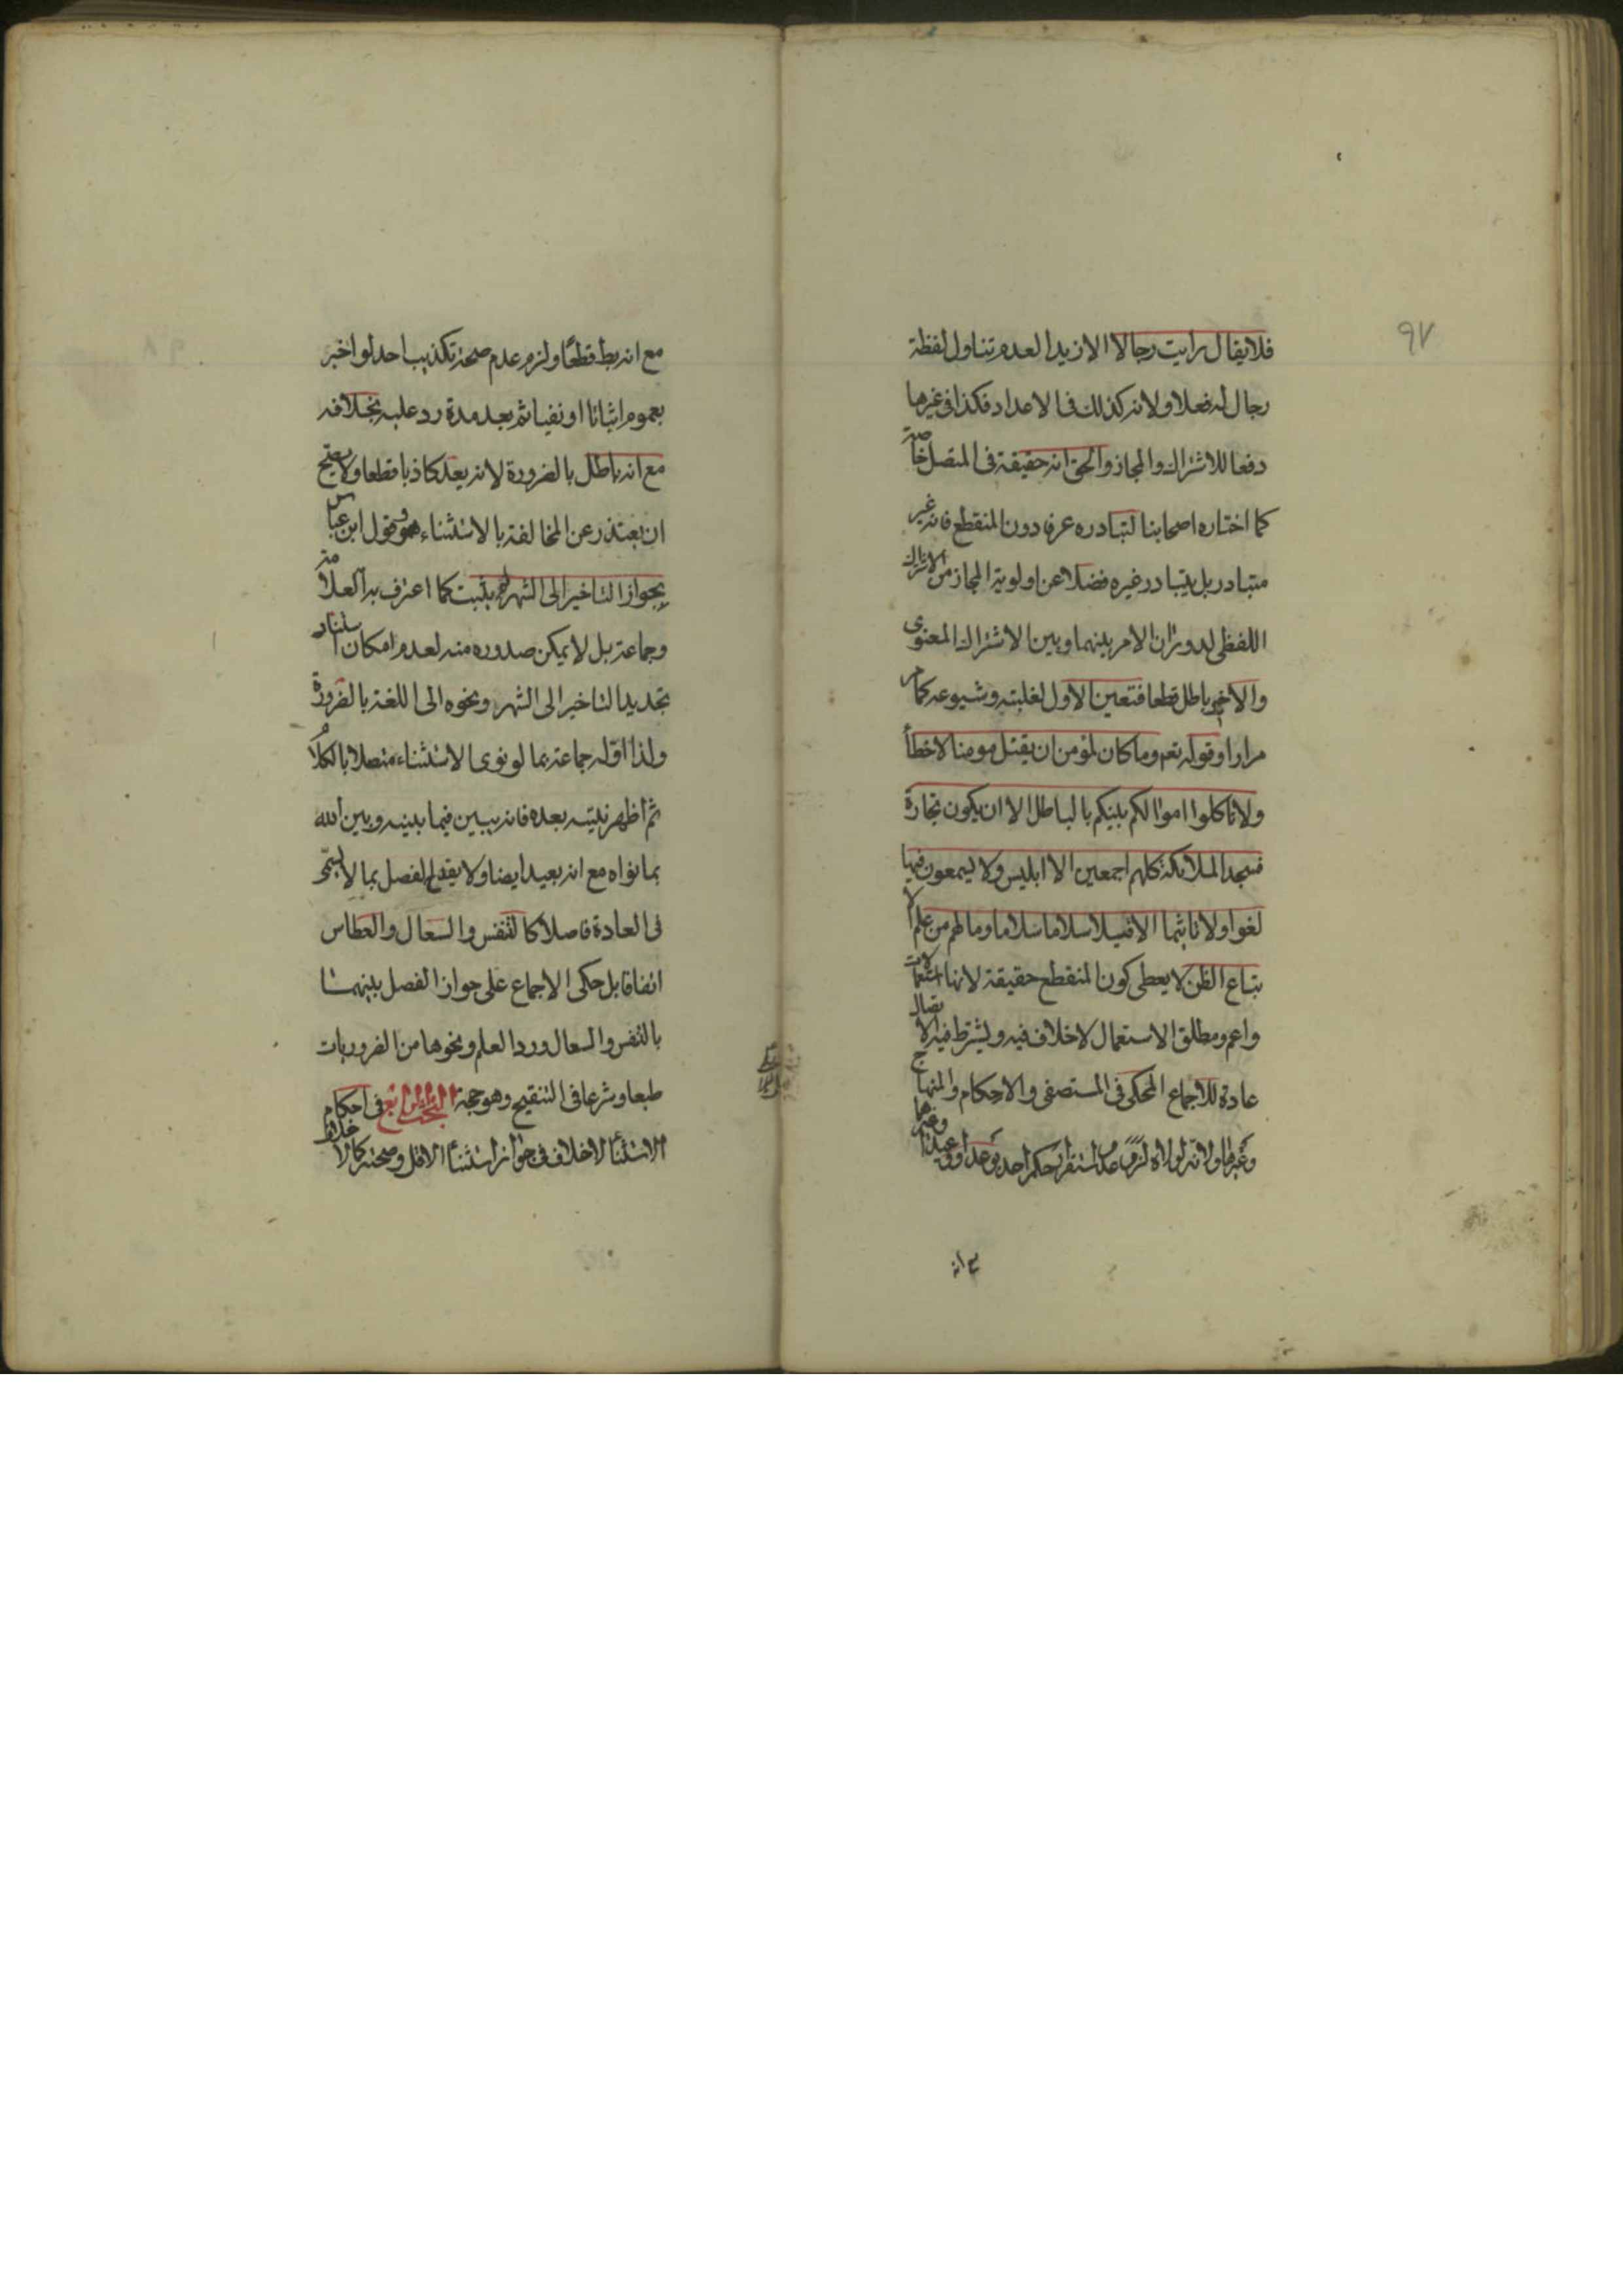 ٩٧
فلا يقال رايت رجالا الا زيدا لعدم تناول لفظة
رجال له فعلا ولانه كذلك فى الاعداد فكذا فى غيرها
دفعا للاشتراك والمجاز والحق انه حقيقة فى المتصل خاصة
كما اختاره اصحابنا لتبادره عرفا دون المنقطع فانه غير
متبادر بل يتبادر غيره فضلا عن اولوية المجاز من الاشتراك
اللفظى لدوران الامر بينهما وبين الاشتراك المعنوى
والاخير باطل قطعا فتعين الاول لغلبته وشيوعه كما مر
مرارا وقوله تعم وما كان لمؤمن ان يقتل مومنا الا خطأ
ولا تاكلوا اموالكم بينكم بالباطل الا ان يكون تجارة
فسجد الملائكة كلهم اجمعين الا ابليس ولا يسمعون فيها
لغوا ولا تاثيما الا قيلا سلاما سلاما وما لهم من علم الا
تباع الظن لا يعطى كون المنقطع حقيقة لانها استعمالات
واعم ومطلق الاستعمال لا خلاف فيه ويشترط فيه الاتصال
عادة للاجماع المحكى فى المستصفى والاحكام والمنهاج
وغيرها ولانه لولاه لزم عدم استقرار حكم احد بوعد او وعيد وغيرها
مع انه
مع انه بط قطعًا ولزم عدم صحة تكذيب احد لو اخبر
بعموم اثباتا او نفيا ثم بعد مدة رد عليه بخلافه
مع انه باطل بالضرورة لانه يعد كاذبا قطعا ولا يصح
ان يعتذر عن المخالفة بالاستثناء وقول ابن عباس
بجواز التاخير الى الشهر لم يثبت كما اعترف به العلامة
وجماعة بل لا يمكن صدوره منه لعدم امكان اسناد
تجديد التاخير الى الشهر ونحوه الى اللغة بالضرورة
ولذا اوله جماعة بما لو نوى الاستثناء متصلا بالكلام
ثم اظهر نيته بعده فانه يبين فيما بينه وبين الله
بما نواه مع انه بعيد ايضا ولا يقدح الفصل بما لا يسمى
فى العادة فاصلا كالتنفس والسعال والعطاس
اتفاقا بل حكى الاجماع على جواز الفصل بينهما
بالتنفس والسعال ورد العلم ونحوها من الضروريات
طبعا وشرعا فى التنقيح وهو حجة البحث الرابع فى احكام
الاستثنا لا خلاف فى جواز استثنا الاقل وصحته كما لا خلاف